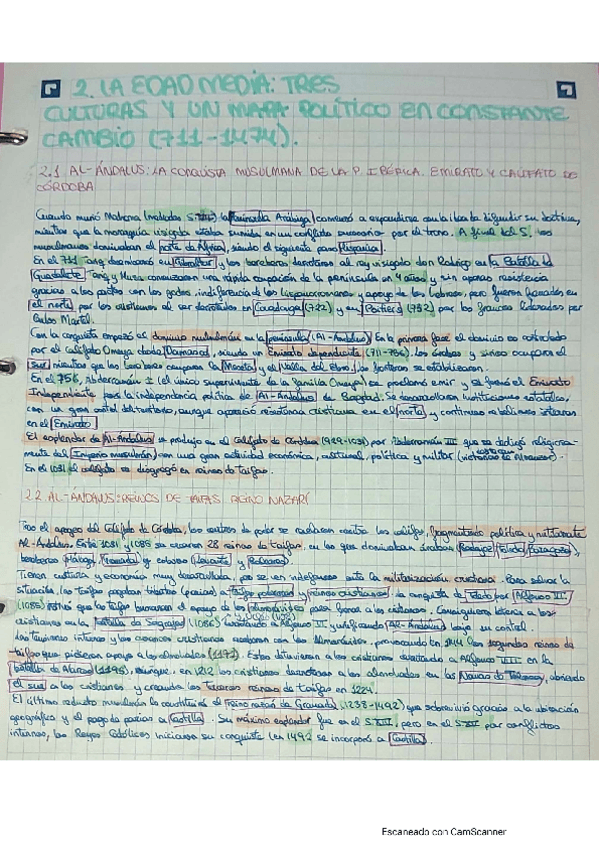 2. LA EDAD MEDIA: TRES
CULTURAS Y UN MAPA POLÍTICO EN CONSTANTE
CAMBIO (711-1474).
2.1 AL-ÁNDALUS: LA CONQUISTA MUSULMANA DE LA P. IBÉRICA. EMIRATO Y CALIFATO DE
CÓRDOBA
Cuando murió Mahoma (mediados S. la Península Arábiga comenzó a expandirse con la idea de difundir su doctrina,
mientras que la monarquía visigoda estaba sumida en un conflicto sucesorio por el trono. A final del S. los
musulmanes dominaban el norte de África, siendo el siguiente paso Hispania.
En el 711 Tariq desembarcó en Gibraltar y los bereberes derrotaron al rey visigodo don Rodrigo en la Batalla de
Guadalete. Tariq y Musa comenzaron una rápida ocupación de la península en 4 años y sin apenas resistencia
gracias a los pactos con los godos, indiferencia de los hispanorromanos y apoyo de los hebreos, pero fueron frenados en
el norte por los cristianos al ser derrotados en Covadonga (722) y en Poitiers (732) por los francos liderados por
Carlos Martel.
Con la conquista empezó el dominio musulmán en la península (Al-Ándalus). En la primera fase el dominio es controlado
por el Califato Omeya desde Damasco, siendo un Emirato dependiente (711-756). Los árabes y sirios ocuparon el
sur mientras que los bereberes ocuparon la Meseta y el Valle del Ebro. se establecieron.
En el 756, Abderramán I (el único superviviente de la familia Omeya) se proclamó emir y se formó el Emirato
Independiente por la independencia política de Al-Ándalus de Bagdad. Se desarrollaron instituciones estatales,
con un gran control del territorio, aunque apareció resistencia cristiana en el norte y continuas rebeliones internas
en el Emirato.
El esplendor de Al-Ándalus se produjo en el Califato de Córdoba (929-1031) por Abderramán III que se desligó religiosa-
mente del Imperio musulmán con una gran actividad económica, cultural, política y militar (victorias de Almanzor).
En el 1031 el califato se disgregó en reinos de taifas.
2.2 AL-ÁNDALUS: REINOS DE TAIFAS. REINO NAZARÍ
Tras el apogeo del Califato de Córdoba, los centros de poder se rebelaron contra los califas, fragmentando política y militarmente
Al-Ándalus. Entre 1031 y 1085 se crearon 28 reinos de taifas, en los que dominaban árabes (Badajoz, Toledo, Zaragoza),
bereberes (Málaga, Granada) y eslavos (Levante y Baleares).
Tienen cultura y economía muy desarrollada, pero se ven indefensos ante la militarización cristiana. Para salvar la
situación, las taifas pagaban tributos (parias) a taifas poderosas y reinos cristianos. La conquista de Toledo por Alfonso VI
(1085) hizo que las taifas buscaran el apoyo de los almorávides para frenar a los cristianos. Consiguieron detener a los
cristianos en la Batalla de Sagrajas (1086) derrotando a Alfonso VI y unificando Al-Ándalus bajo su control.
Las tensiones internas y los avances cristianos acabaron con los Almorávides, provocando en 1144 los segundos reinos de
taifas que pidieron apoyo a los almohades (1172). Estos detuvieron a los cristianos derrotando a Alfonso VIII en la
batalla de Alarcos (1195), aunque, en 1212 los cristianos derrotaron a los almohades en las Navas de Tolosa, abriendo
el sur a los cristianos y creando los terceros reinos de taifas en 1224.
El último reducto musulmán lo constituirá el Reino nazarí de Granada (1238-1492) que sobrevivió gracias a la ubicación
geográfica y el pago de parias a Castilla. Su máximo esplendor fue en el S.XIV, pero en el S.XV por conflictos
internos, los Reyes Católicos iniciaron su conquista (en 1492 se incorporó a Castilla).
Escaneado con CamScanner